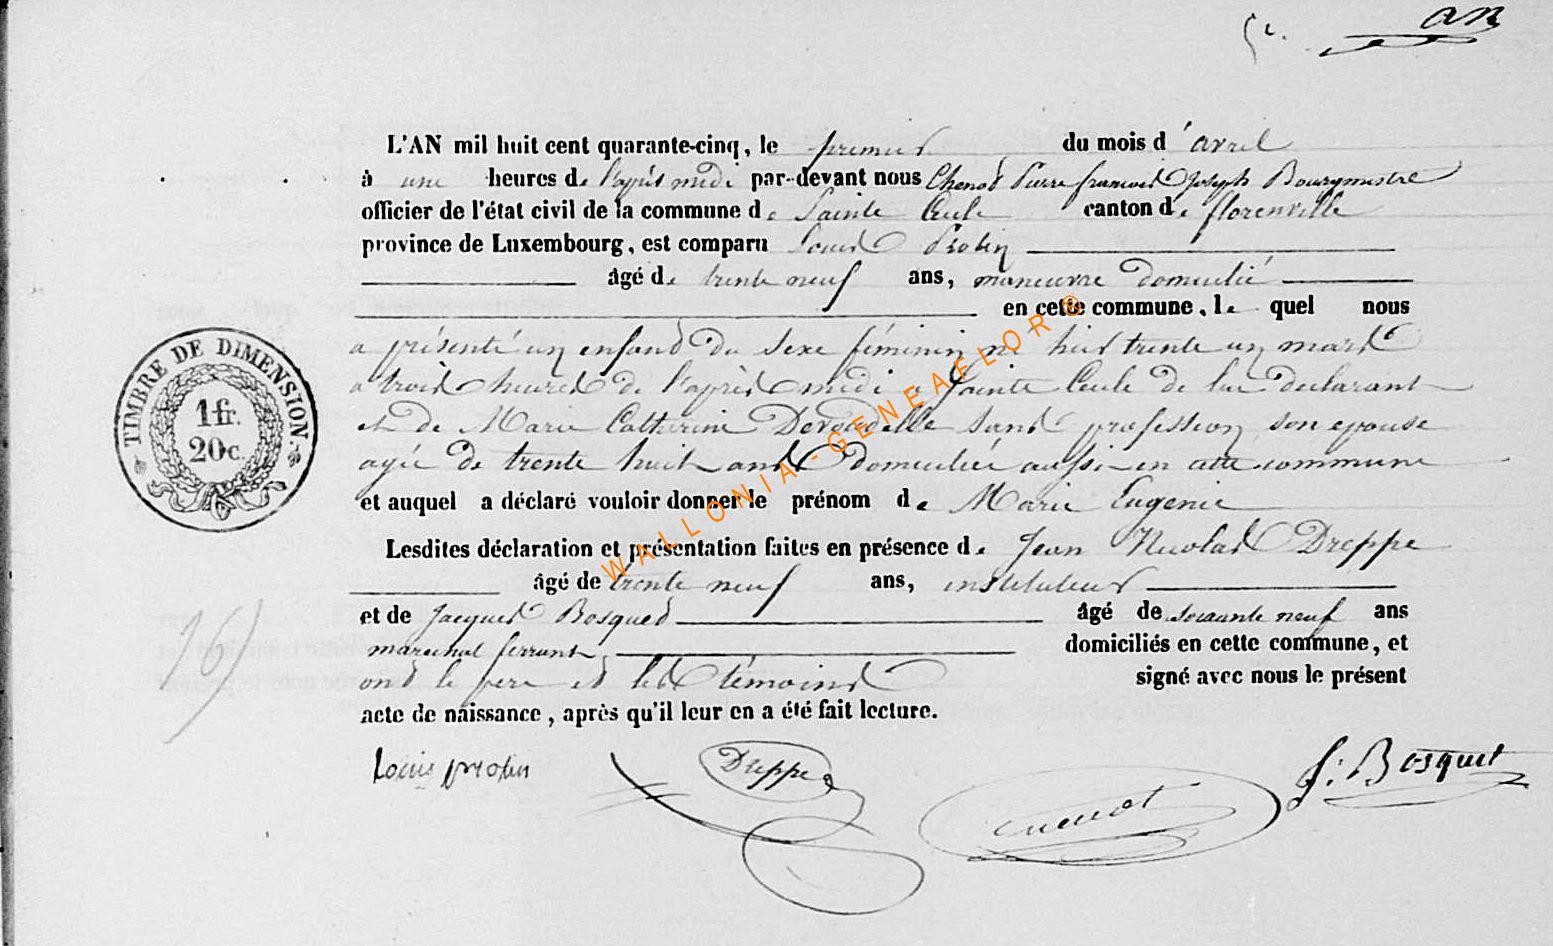 an
L'AN mil huit cent quarante-cinq, le premier du mois d'avril
à une heures de l'après midi par-devant nous Chenot Pierre françois Joseph Bourgmestre
officier de l'état civil de la commune de Sainte Cecile canton de florenville
province de Luxembourg, est comparu Louis Protin
âgé de trente neuf ans, manœuvre domicilié
en cette commune, lequel nous
a présenté un enfant du sexe féminin né hier trente un mars
a trois heures de l'après midi a Sainte Cecile de lui declarant
et de Marie Catherine Devoidelle sans profession son epouse
agée de trente huit ans domiciliée aussi en cette commune
et auquel a déclaré vouloir donner le prénom de Marie Eugenie
Lesdites déclaration et présentation faites en présence de Jean Nicolas Dreppe
âgé de trente neuf ans, instituteur
et de Jacques Bosquet âgé de soixante neuf ans
marechal ferrant domiciliés en cette commune, et
ont le pere et les témoins signé avec nous le présent
acte de naissance, après qu'il leur en a été fait lecture.
Louis protin Dreppe Chenot J. Bosquet
TIMBRE DE DIMENSION.
1 fr.
20 c.
16)
WALLONIA-GENEAFLOR ©